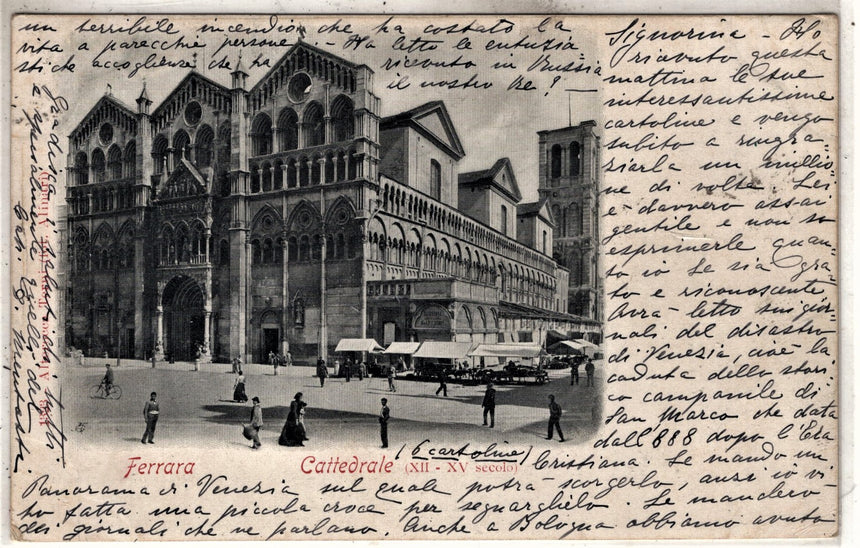 Signorina - Ho
ricevuto questa
mattina le sue
interessantissime
cartoline e vengo
subito a ringra-
ziarla un millio-
ne di volte. Lei
è davvero assai
gentile e non so
esprimerle quan-
to io Le sia gra-
to e riconoscente
Avrà letto sui gior-
nali del disastro
di Venezia, cioè la
caduta dello stori-
co campanile di
San Marco che data
dall'888 dopo l'Era
Cristiana. Le mando un
Panorama di Venezia sul quale potrà scorgerlo, anzi io vi
ho fatto una piccola croce per segnarglielo. Le manderò
dei giornali che ne parlano. Anche a Bologna abbiamo avuto
un terribile incendio che ha costato la
vita a parecchie persone - Ha letto le entusia-
stiche accoglienze che ha ricevuto in Russia
il nostro Re? -
Gradisca i saluti di tutti
e specialmente quelli del
Ferrara
Cattedrale (XII - XV secolo)
(6 cartoline)